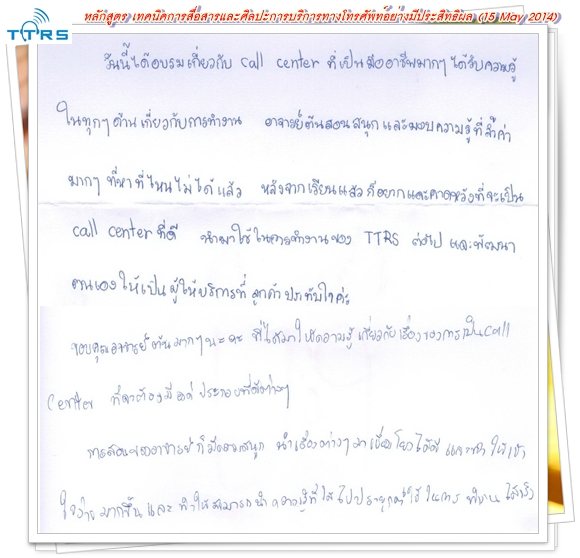 TTRS
หลักสูตร เทคนิคการสื่อสารและศิลปะการบริการทางโทรศัพท์อย่างมีประสิทธิผล (15 May 2014)
วันนี้ได้อบรมเกี่ยวกับ call center ที่เป็นมืออาชีพมากๆ ได้รับความรู้
ในทุกๆด้านเกี่ยวกับการทำงาน อาจารย์ต้นสอนสนุก และมอบความรู้ที่ล้ำค่า
มากๆ ที่หาที่ไหนไม่ได้แล้ว หลังจากเรียนแล้วก็อยากและคาดหวังที่จะเป็น
call center ที่ดี นำมาใช้ในการทำงานของ TTRS ต่อไป และพัฒนา
ตนเองให้เป็นผู้ให้บริการที่ลูกค้าประทับใจค่ะ
ขอบคุณอาจารย์ต้นมากๆนะคะ ที่ได้มาให้ความรู้เกี่ยวกับเรื่องของการเป็น call
Center ที่จะต้องมีองค์ประกอบที่ดีต่างๆ
การสอนของอาจารย์ก็มีความสนุก นำเรื่องต่างๆมาเชื่อมโยงได้ดี และทำให้เข้า
ใจง่ายมากขึ้นและ ทำให้สามารถนำความรู้ที่ได้ไปประยุกต์ใช้ในการทำงานได้จริง